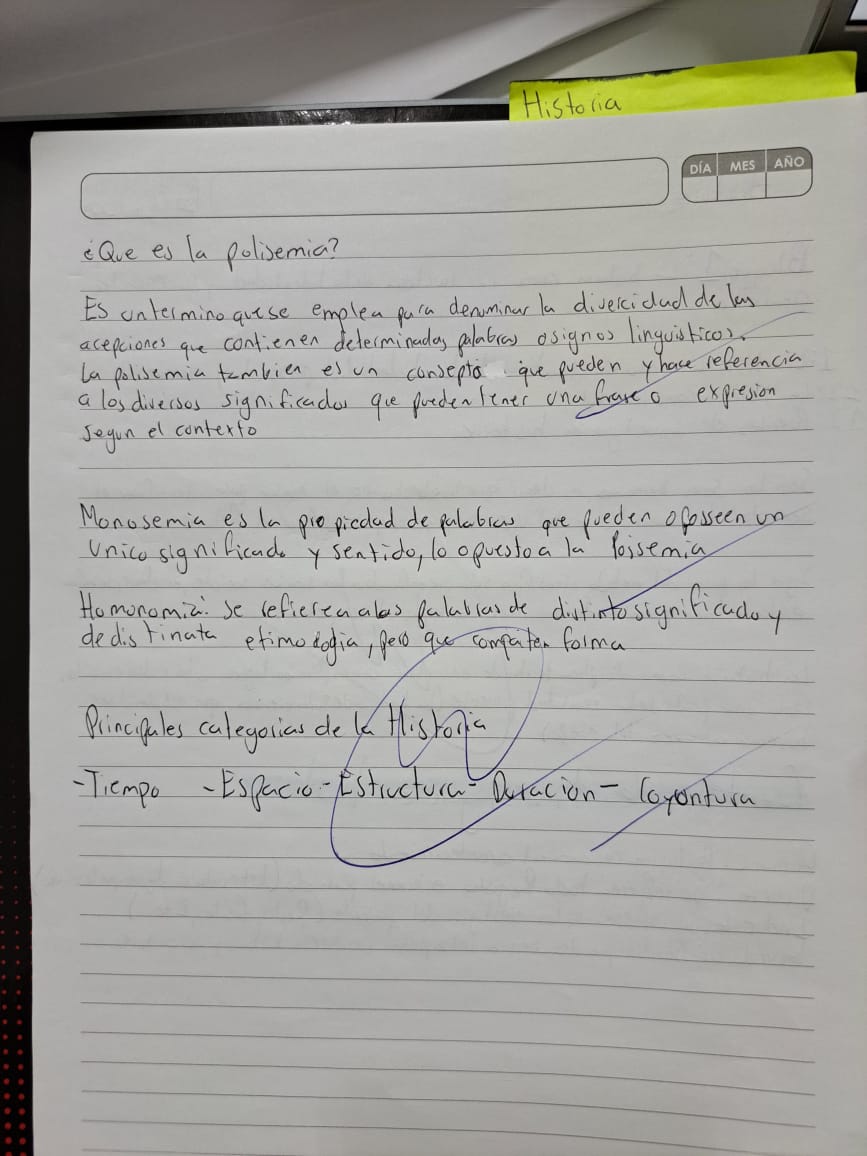 Historia
DÍA MES AÑO
¿Que es la polisemia?
Es untermino quese emplea para denominar la divercidad de las
acepciones que contienen determinadas palabras osignos linguisticos.
la polisemia tambien es un consepto que pueden y hace referencia
a los diversos significados que pueden tener una frase o expresion
segun el contexto
Monosemia es la propiedad de palabras que pueden oposseen un
Unico significado y sentido, lo opuesto a la Poisemia
Homonomia: se refieren alas palabras de distinto significado y
de distinata etimologia, pero que compaten forma
Principales categorias de la Historia
-Tiempo -Espacio-Estructura-Duracion-Coyontura